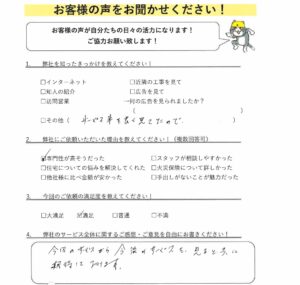 お客様の声をお聞かせください！
お客様の声が自分たちの日々の活力になります！
ご協力お願い致します！
1. 弊社を知ったきっかけを教えてください！
□インターネット □近隣の工事を見て
□知人の紹介 □広告を見て
□訪問営業 →何の広告を見られましたか？
( )
□その他（ ）
2. 弊社にご依頼いただいた理由を教えてください！（複数回答可）
☑専門性が高そうだった □スタッフが相談しやすかった
□住宅についての悩みを解決してくれた □火災保険について詳しかった
□他社様に比べ金額が安かった □手出しがないことが魅力だった
3. 今回のご依頼の満足度を教えてください！
□大満足 ☑満足 □普通 □不満
4. 弊社のサービス全体に関するご感想・ご意見を自由にお書きください！
今後のサービスを
期待しております。